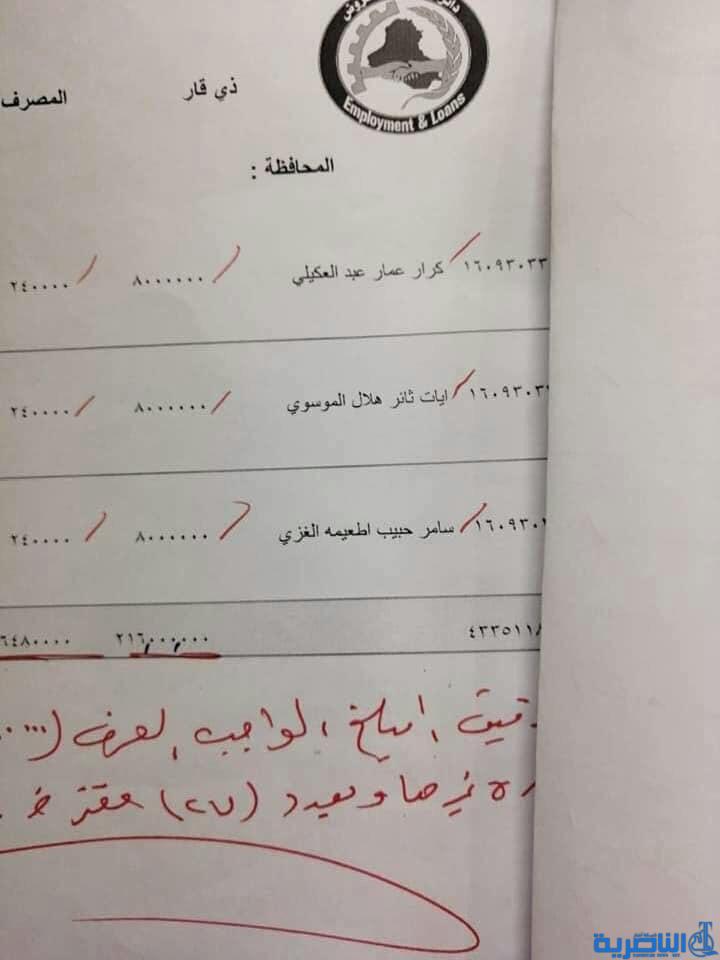 Employment & Loans
ذي قار
المصرف
المحافظة :
١٦٠٩٣٠٣٣ كرار عمار عبد العكيلي ٨٠٠٠٠٠٠ ٢٤٠٠٠٠
١٦٠٩٣٠٣ ايات ثائر هلال الموسوي ٨٠٠٠٠٠٠ ٢٤٠٠٠٠
١٦٠٩٣٠ سامر حبيب اطعيمه الغزي ٨٠٠٠٠٠٠ ٢٤٠٠٠٠
٤٣٣٥١١٨ ٢١٦,٠٠٠,٠٠٠ ٦٤٨٠٠٠٠
المبلغ الواجب الصرف
غيرها وبعدد (٢٧) مقترض
الناصرية